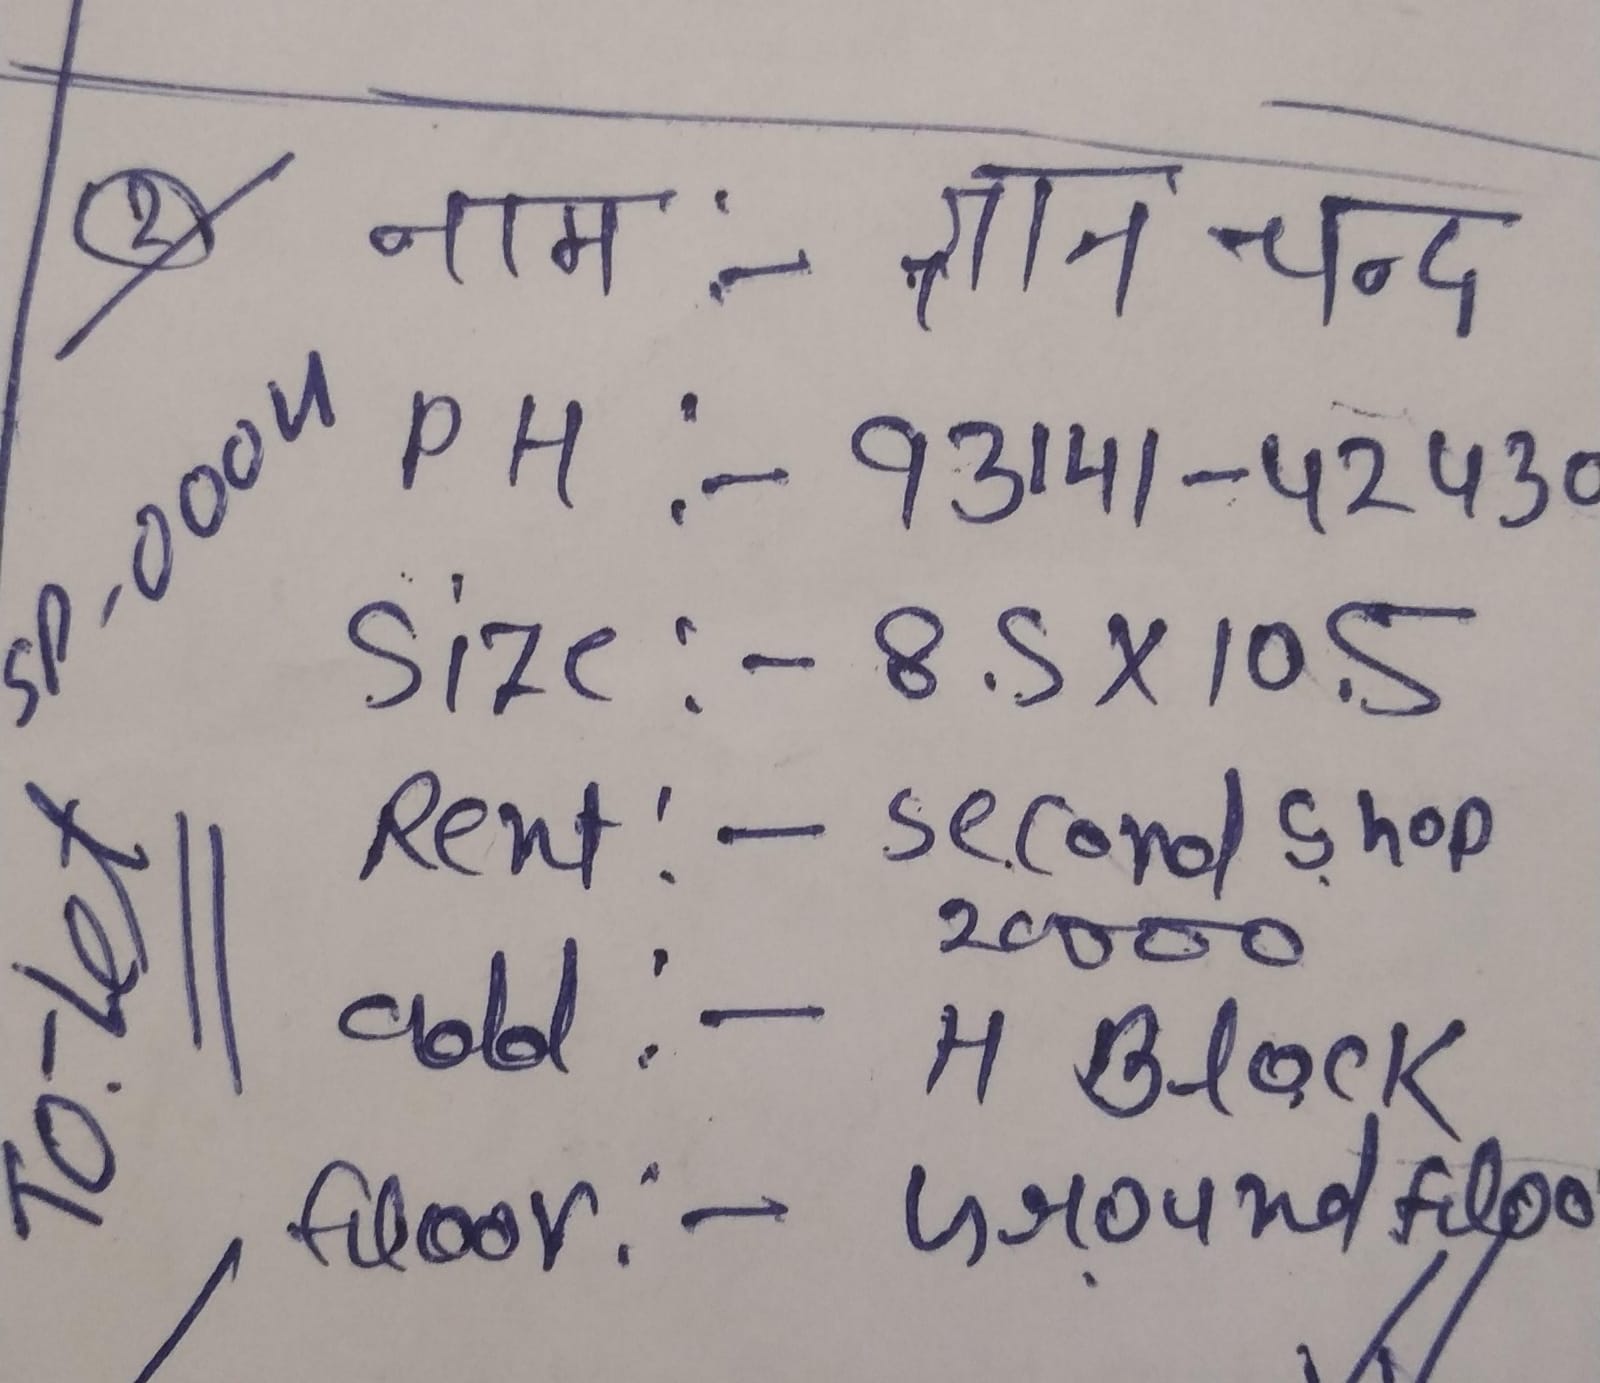 2 नाम :- ज्ञान चन्द
SP-0004
PH :- 93141-42430
Size :- 8.5 X 10.5
To-Let
Rent :- second shop
20000
add :- H Block
filoor :- Ground filoo